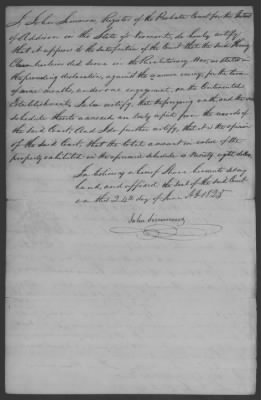 I John Simmons Register of the Probate Court for the District
of Addison in the State of Vermont, do hereby certify,
that it appears to the satisfaction of the Court that the said Henry
Chamberlain did serve in the Revolutionary War, as stated in
the preceding declaration, against the common enemy, for the term
of nine months, under one engagement, on the Continental
Establishment. I also certify, that the foregoing oath, and the
schedule thereto annexed are truly copied from the records of
the said Court. And I do further certify, that it is the opinion
of the said Court, that the total amount in value of the
property exhibited in the aforesaid schedule is twenty eight dollars
In testimony whereof I have hereunto set my
hand, and affixed the seal of the said Court
on this 24th day of June A.D. 1825
John Simmons